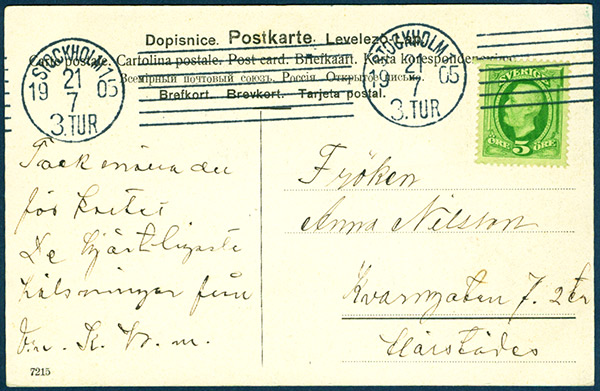 Dopisnice. Postkarte. Levelező-Lap.
Carte postale. Cartolina postale. Post card. Briefkaart. Karta korespondencyjna.
Всемірный почтовый союзъ. Россія. Открытое письмо.
Brefkort. Brevkort. Tarjeta postal.
STOCKHOLM 1.
21
19 7 05
3.TUR
STOCKHOLM 1.
19 7 05
3.TUR
SVERIGE
ÖRE 5 ÖRE
Tack
för kortet
De hjärtligaste
hälsningar från
Fröken
Anna Nilsson
Kvarngatan 7. 2 tr
7215